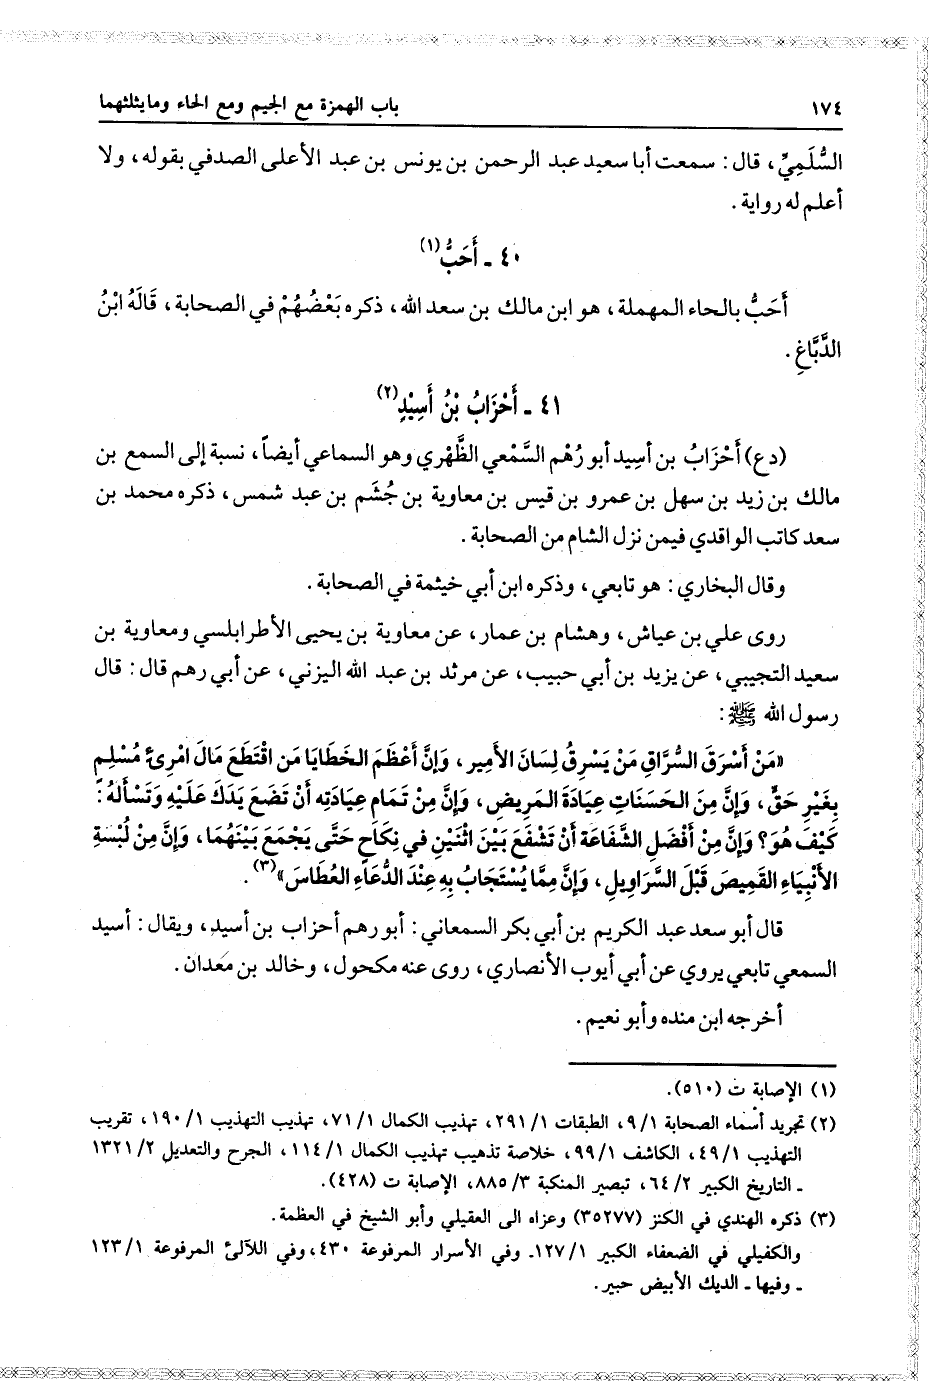 ١٧٤ باب الهمزة مع الجيم ومع الحاء ومايثلثهما
السُّلَمِيِّ، قال: سمعت أبا سعيد عبد الرحمن بن يونس بن عبد الأعلى الصدفي بقوله، ولا
أعلم له رواية.
٤٠ ـ أَحَبُّ(١)
أَحَبُّ بالحاء المهملة، هو ابن مالك بن سعد الله، ذكره بَعْضُهُمْ في الصحابة، قَالَهُ ابْنُ
الدَّبَّاغِ.
٤١ ـ أَحْزَابُ بْنُ أَسِيْدٍ(٢)
(دع) أَحْزَابُ بن أسِيد أبو رُهْم السَّمْعي الظَّهْري وهو السماعي أيضاً، نسبة إلى السمع بن
مالك بن زيد بن سهل بن عمرو بن قيس بن معاوية بن جُشَم بن عبد شمس، ذكره محمد بن
سعد كاتب الواقدي فيمن نزل الشام من الصحابة.
وقال البخاري: هو تابعي، وذكره ابن أبي خيثمة في الصحابة.
روى علي بن عياش، وهشام بن عمار، عن معاوية بن يحيى الأطرابلسي ومعاوية بن
سعيد التجيبي، عن يزيد بن أبي حبيب، عن مرثد بن عبد الله اليزني، عن أبي رهم قال: قال
رسول الله ﷺ:
«مَنْ أَسْرَقَ السُّرَّاقِ مَنْ يَسْرِقُ لِسَانَ الأَمِير، وَإِنَّ أَعْظَمَ الخَطَايَا مَن اقْتَطَعَ مَالَ امْرِئٍ مُسْلِمٍ
بِغَيْرِ حَقٍّ، وَإِنَّ مِنَ الحَسَنَاتِ عِيَادَةَ المَرِيضِ، وَإِنَّ مِنْ تَمَامِ عِيَادَتِهِ أَنْ تَضَعَ يَدَكَ عَلَيْهِ وَتَسْأَلَهُ:
كَيْفَ هُوَ؟ وَإِنَّ مِنْ أَفْضَلِ الشَّفَاعَةِ أَنْ تَشْفَعَ بَيْنَ اثْنَيْنِ في نِكَاحٍ حَتَّى يَجْمَعَ بَيْنَهُمَا، وَإِنَّ مِنْ لُبْسَةِ
الأَنْبِيَاءِ القَمِيصَ قَبْلَ السَّرَاوِيلِ، وَإِنَّ مِمَّا يُسْتَجَابُ بِهِ عِنْدَ الدُّعَاءِ العُطَاسَ»(٣).
قال أبو سعد عبد الكريم بن أبي بكر السمعاني: أبو رهم أحزاب بن أسيد، ويقال: أسيد
السمعي تابعي يروي عن أبي أيوب الأنصاري، روى عنه مكحول، وخالد بن معدان.
أخرجه ابن منده وأبو نعيم.
(١) الإصابة ت (٥١٠).
(٢) تجريد أسماء الصحابة ٩/١، الطبقات ٢٩١/١، تهذيب الكمال ٧١/١، تهذيب التهذيب ١٩٠/١، تقريب
التهذيب ٤٩/١، الكاشف ٩٩/١، خلاصة تذهيب تهذيب الكمال ١١٤/١، الجرح والتعديل ١٣٢١/٢
ـ التاريخ الكبير ٦٤/٢، تبصير المنكبة ٨٨٥/٣، الإصابة ت (٤٢٨).
(٣) ذكره الهندي في الكنز (٣٥٢٧٧) وعزاه الى العقيلي وأبو الشيخ في العظمة.
والكفيلي في الضعفاء الكبير ١٢٧/١ـ وفي الأسرار المرفوعة ٤٣٠، وفي اللآلئ المرفوعة ١٢٣/١
ـ وفيها ـ الديك الأبيض حبير.